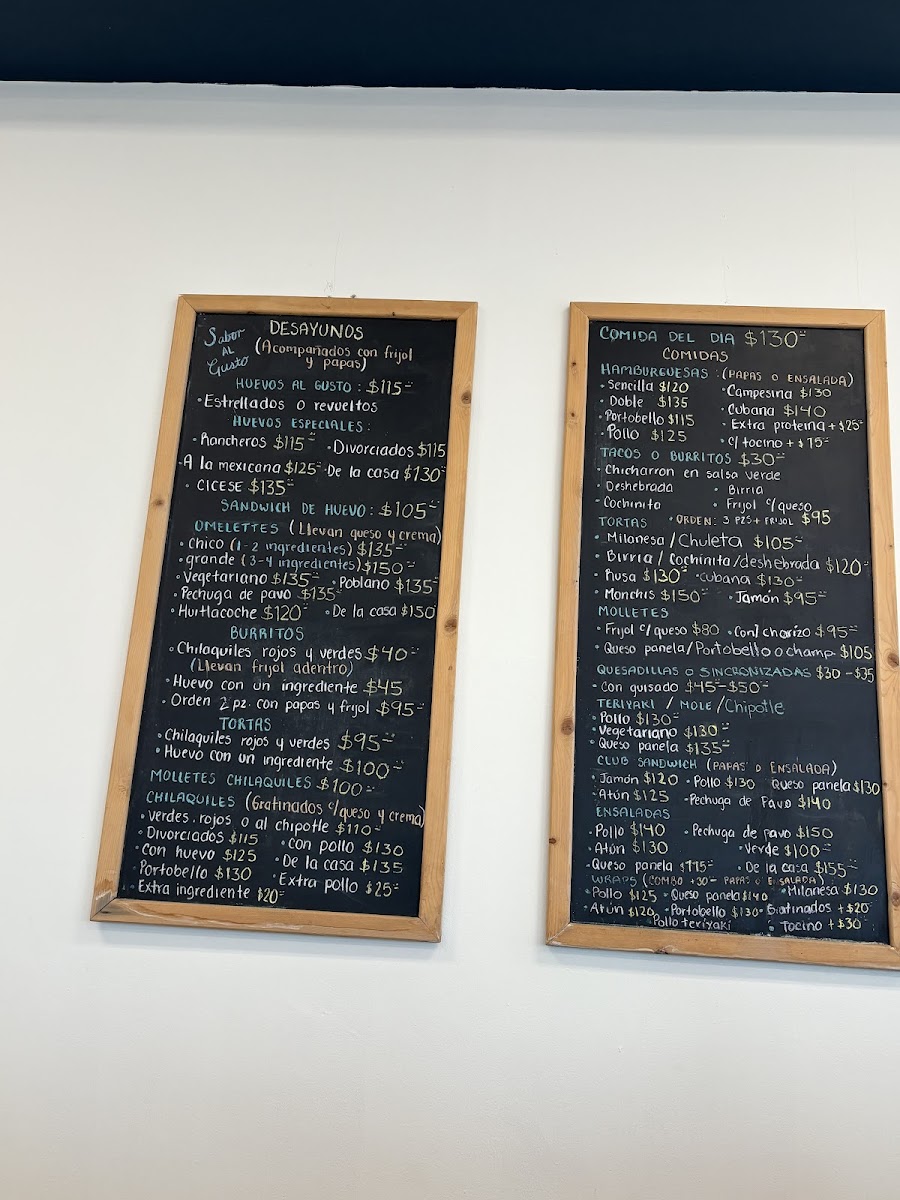 Sabor
AL
Gusto
DESAYUNOS
(Acompañados con frijol
y papas)
HUEVOS AL GUSTO : $115-
• Estrellados o revueltos
HUEVOS ESPECIALES:
• Rancheros $115 • Divorciados $115
- A la mexicana $125 • De la casa $130
• CICESE $135
SANDWICH DE HUEVO: $105
OMELETTES (Llevan queso y crema)
• Chico (1-2 ingredientes) $135
• grande (3-4 ingredientes) $150
• Vegetariano $135 • Poblano $135
• Pechuga de pavo $135
• Huitlacoche $120 • De la casa $150
BURRITOS
• Chilaquiles rojos y verdes $40
(Llevan frijol adentro)
• Huevo con un ingrediente $45
• Orden 2 pz. con papas y frijol $95
TORTAS
• Chilaquiles rojos y verdes $95
• Huevo con un ingrediente $100
MOLLETES CHILAQUILES $100
CHILAQUILES (Gratinados c/queso y crema)
• Verdes, rojos o al chipotle $110
• Divorciados $115 • con pollo $130
• Con huevo $125 • De la casa $135
• Portobello $130 • Extra pollo $25
• Extra ingrediente $20
COMIDA DEL DIA $130
COMIDAS
HAMBURGUESAS : (PAPAS O ENSALADA)
• Sencilla $120 • Campesina $130
• Doble $135 • Cubana $140
• Portobello $115 • Extra proteina + $25
• Pollo $125 • c/ tocino + $15
TACOS O BURRITOS $30
• Chicharron en salsa verde
• Deshebrada • Birria
• Cochinita • Frijol c/queso
TORTAS • ORDEN: 3 PZS + FRIJOL $95
• Milanesa / Chuleta $105
• Birria / Cochinita / deshebrada $120
• Rusa $130 • Cubana $130
• Monchis $150 • Jamón $95
MOLLETES
• Frijol c/queso $80 • Con chorizo $95
• Queso panela / Portobello o champ. $105
QUESADILLAS o SINCRONIZADAS $30-$35
- Con guisado $45-$50
TERIYAKI / MOLE / Chipotle
• Pollo $130
• Vegetariano $130
• Queso panela $135
CLUB SANDWICH (PAPAS O ENSALADA)
• Jamón $120 • Pollo $130 Queso panela $130
• Atún $125 • Pechuga de Pavo $140
ENSALADAS
• Pollo $140 • Pechuga de pavo $150
• Atún $130 • Verde $100
• Queso panela $115 • De la casa $155
WRAPS (COMBO +30 PAPAS O ENSALADA)
• Pollo $125 • Queso panela $140 • Milanesa $130
• Atún $120 • Portobello $130 • Gratinados + $20
• Pollo teriyaki • Tocino + $30